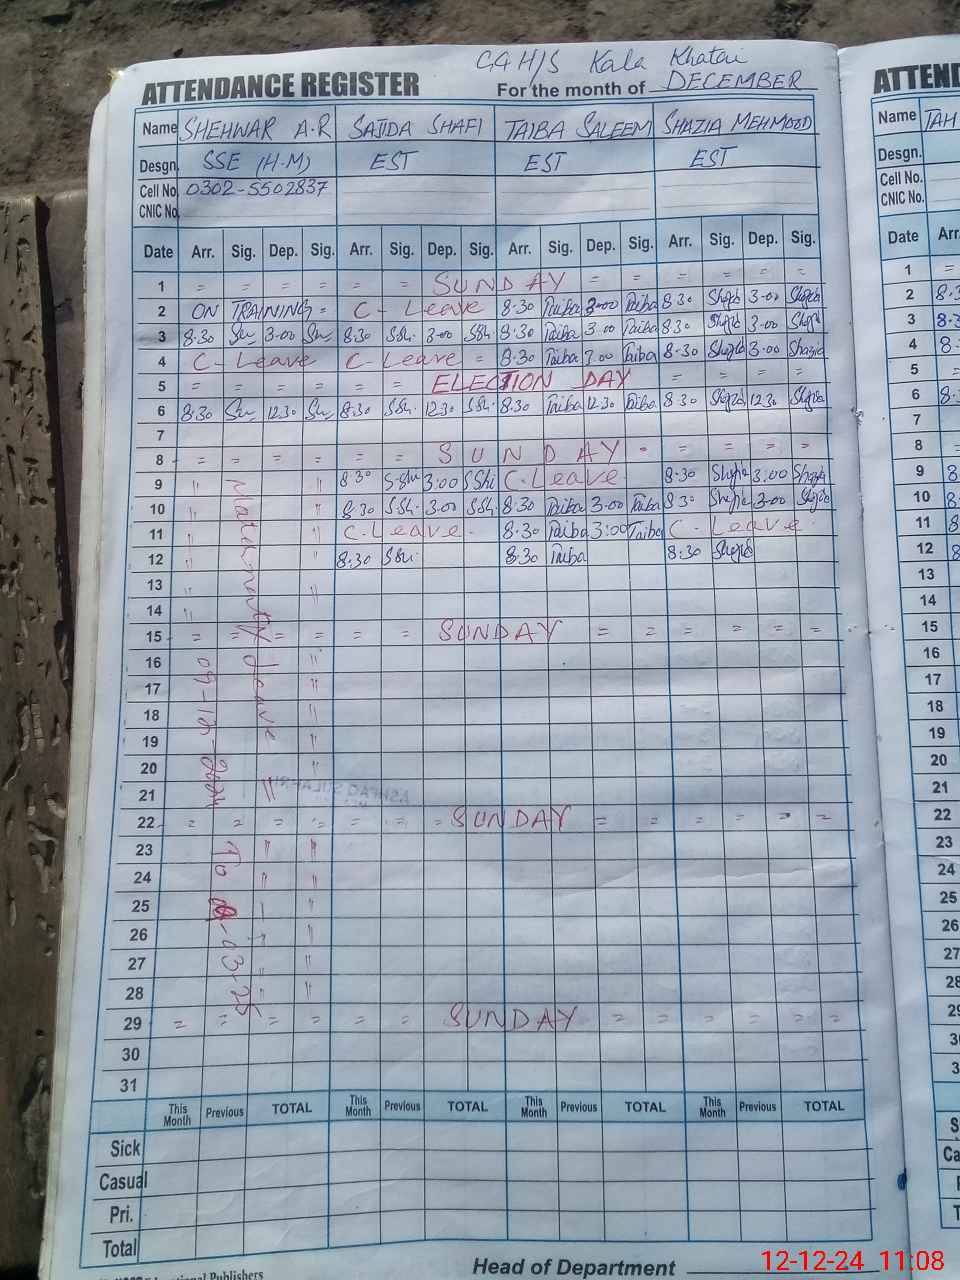 GGH/S Kala Khatai
ATTENDANCE REGISTER For the month of DECEMBER ATTEND
Name SHEHWAR A.R SAJIDA SHAFI TAIBA SALEEM SHAZIA MEHMOOD Name TAH
Desgn. SSE (H.M) EST EST EST Desgn.
Cell No. 0302-5502837 Cell No.
CNIC No. CNIC No.
Date Arr. Sig. Dep. Sig. Arr. Sig. Dep. Sig. Arr. Sig. Dep. Sig. Arr. Sig. Dep. Sig. Date Arr.
1 = = = = = = SUNDAY = = = = = = 1 =
2 ON TRAINING = C - Leave 8.30 Taiba 3.00 Taiba 8.30 Shazia 3.00 Shazia 2 8.3
3 8.30 3.00 8.30 SSh. 3.00 SSh. 8.30 Taiba 3.00 Taiba 8.30 Shazia 3.00 Shazia 3 8.3
4 C - Leave C - Leave = 8.30 Taiba Taiba 8.30 Shazia 3.00 Shazia 4 8.
5 = = = = = = ELECTION DAY = = = = 5 =
6 8.30 12.30 8.30 SSh. 12.30 SSh. 8.30 Taiba 12.30 Taiba 8.30 Shazia 12.30 Shazia 6 8.3
7 7
8 = = = = = = SUNDAY - = = = = 8 =
9 " " 8.30 S-Shi 3:00 SShi C.Leave 8.30 Shazia 3:00 Shazia 9 8.
10 " " 8.30 SSh. 3.00 SSh. 8.30 Taiba 3.00 Taiba 8.30 Shazia 3.00 Shazia 10 8.
11 " " C.Leave. 8.30 Taiba 3:00 Taiba C - Leave. 11 8.
12 " " 8.30 SSh. 8.30 Taiba 8.30 Shazia 12 8
13 " " 13
14 " 14
15 = = = = = = SUNDAY = = = = = = 15
16 " 16
17 " 17
18 " 18
19 " 19
20 " 20
21 21
22 = = = = = = = SUNDAY = = = = = = 22
23 " " 23
24 " " 24
25 " 25
26 " 26
27 " 27
28 " " 28
29 = = = = = = SUNDAY = = = = = = 29
30 30
31 3
Maternity Leave =
09-12-2024 To
-03-25
This Month Previous TOTAL This Month Previous TOTAL This Month Previous TOTAL This Month Previous TOTAL
Sick S
Casual Ca
Pri.
Total T
Publishers Head of Department
12-12-24 11:08